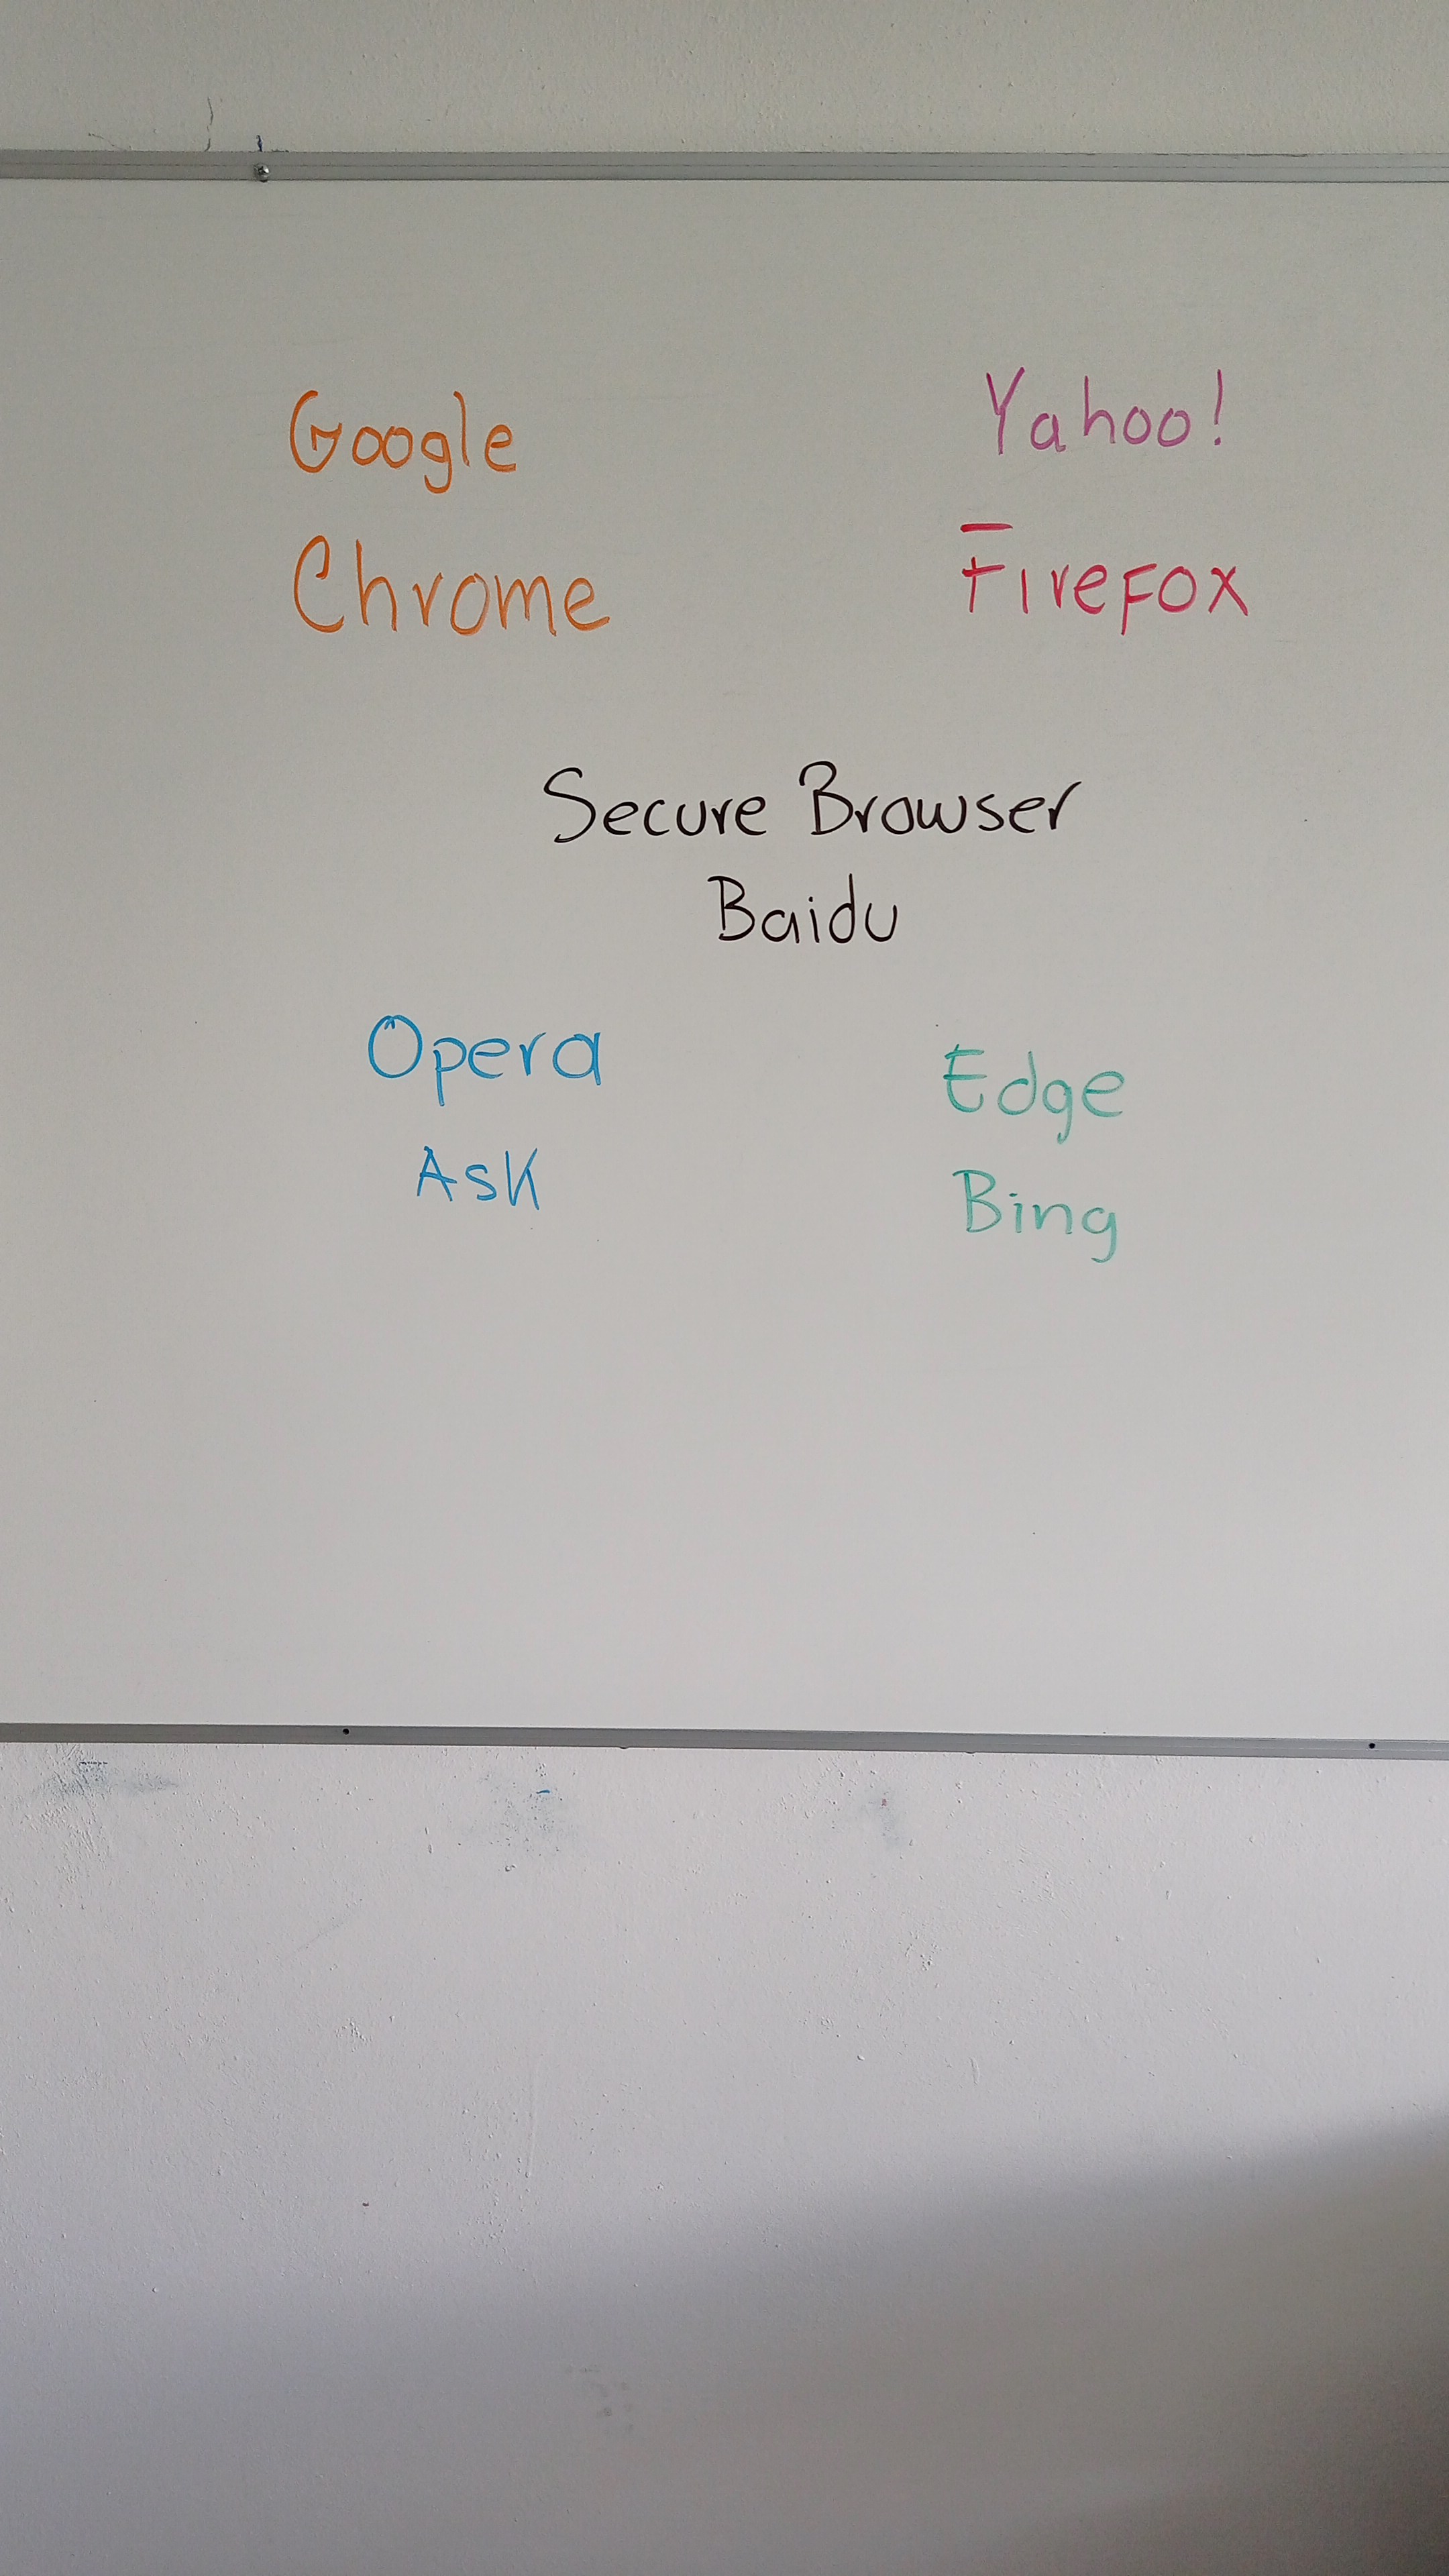 Google
Chrome
Yahoo!
FireFox
Secure Browser
Baidu
Opera
Ask
Edge
Bing